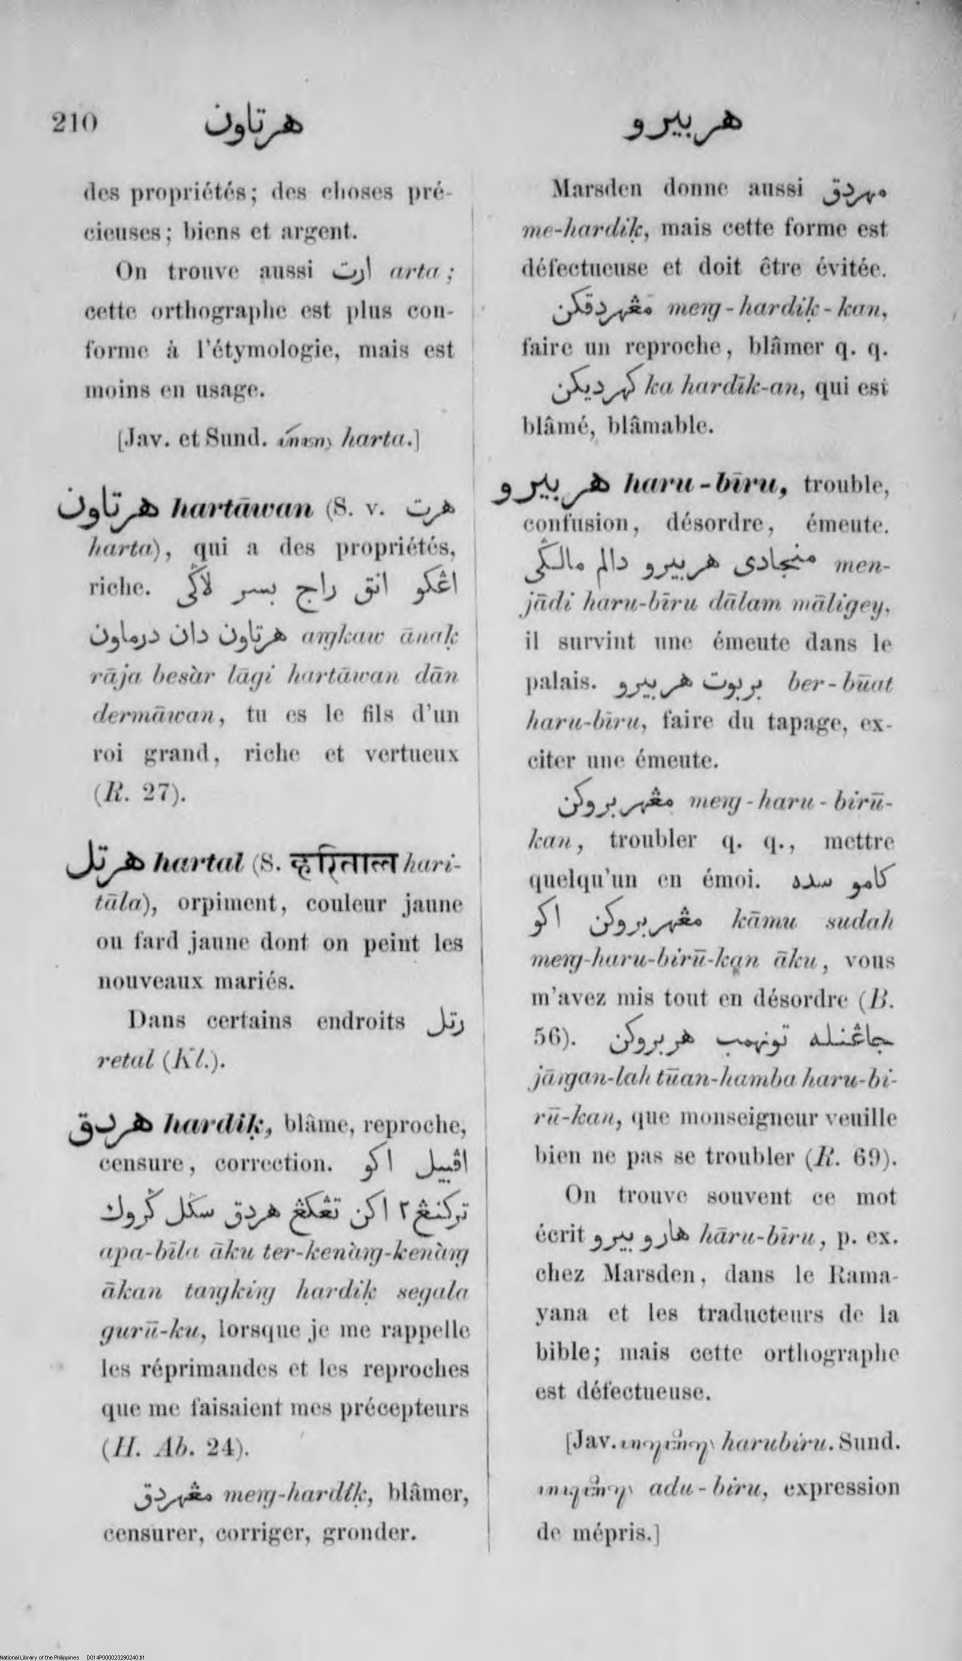 210
هرتاون
هربيرو
des propriétés; des choses pré-
cieuses; biens et argent.
On trouve aussi ارت arta;
cette orthographe est plus con-
forme à l'étymologie, mais est
moins en usage.
[Jav. et Sund. harta.]
هرتاون hartāwan (S. v. هرت
harta), qui a des propriétés,
riche. اڠكو انق راج بسر لاݢي
هرتاون دان درماون angkaw ānaḳ
rāja besàr lāgi hartāwan dān
dermāwan, tu es le fils d'un
roi grand, riche et vertueux
(R. 27).
هرتل hartal (S. हरिताल hari-
tāla), orpiment, couleur jaune
ou fard jaune dont on peint les
nouveaux mariés.
Dans certains endroits رتل
retal (Kl.).
هردق hardiḳ, blâme, reproche,
censure, correction. اڤبيل اكو
تركنڠ٢ اكن تڠكڠ هردق سݢل ݢروك
apa-bīla āku ter-kenàng-kenàng
ākan tangking hardiḳ segala
gurū-ku, lorsque je me rappelle
les réprimandes et les reproches
que me faisaient mes précepteurs
(H. Ab. 24).
مڠهردق meng-hardiḳ, blâmer,
censurer, corriger, gronder.
Marsden donne aussi مهردق
me-hardiḳ, mais cette forme est
défectueuse et doit être évitée.
مڠهردقكن meng-hardiḳ-kan,
faire un reproche, blâmer q. q.
كهرديكن ka hardīk-an, qui est
blâmé, blâmable.
هربيرو haru-bīru, trouble,
confusion, désordre, émeute.
منجادي هربيرو دالم مالݢي men-
jādi haru-bīru dālam māligey,
il survint une émeute dans le
palais. بربوت هربيرو ber-būat
haru-bīru, faire du tapage, ex-
citer une émeute.
مڠهربروكن meng-haru-birū-
kan, troubler q. q., mettre
quelqu'un en émoi. كامو سده
مڠهربروكن اكو kāmu sudah
meng-haru-birū-kan āku, vous
m'avez mis tout en désordre (B.
56). جاڠنله تونهمب هربروكن
jāngan-lah tūan-hamba haru-bi-
rū-kan, que monseigneur veuille
bien ne pas se troubler (R. 69).
On trouve souvent ce mot
écrit هارو بيرو hāru-bīru, p. ex.
chez Marsden, dans le Rama-
yana et les traducteurs de la
bible; mais cette orthographe
est défectueuse.
[Jav. harubiru. Sund.
adu-biru, expression
de mépris.]
National Library of the Philippines